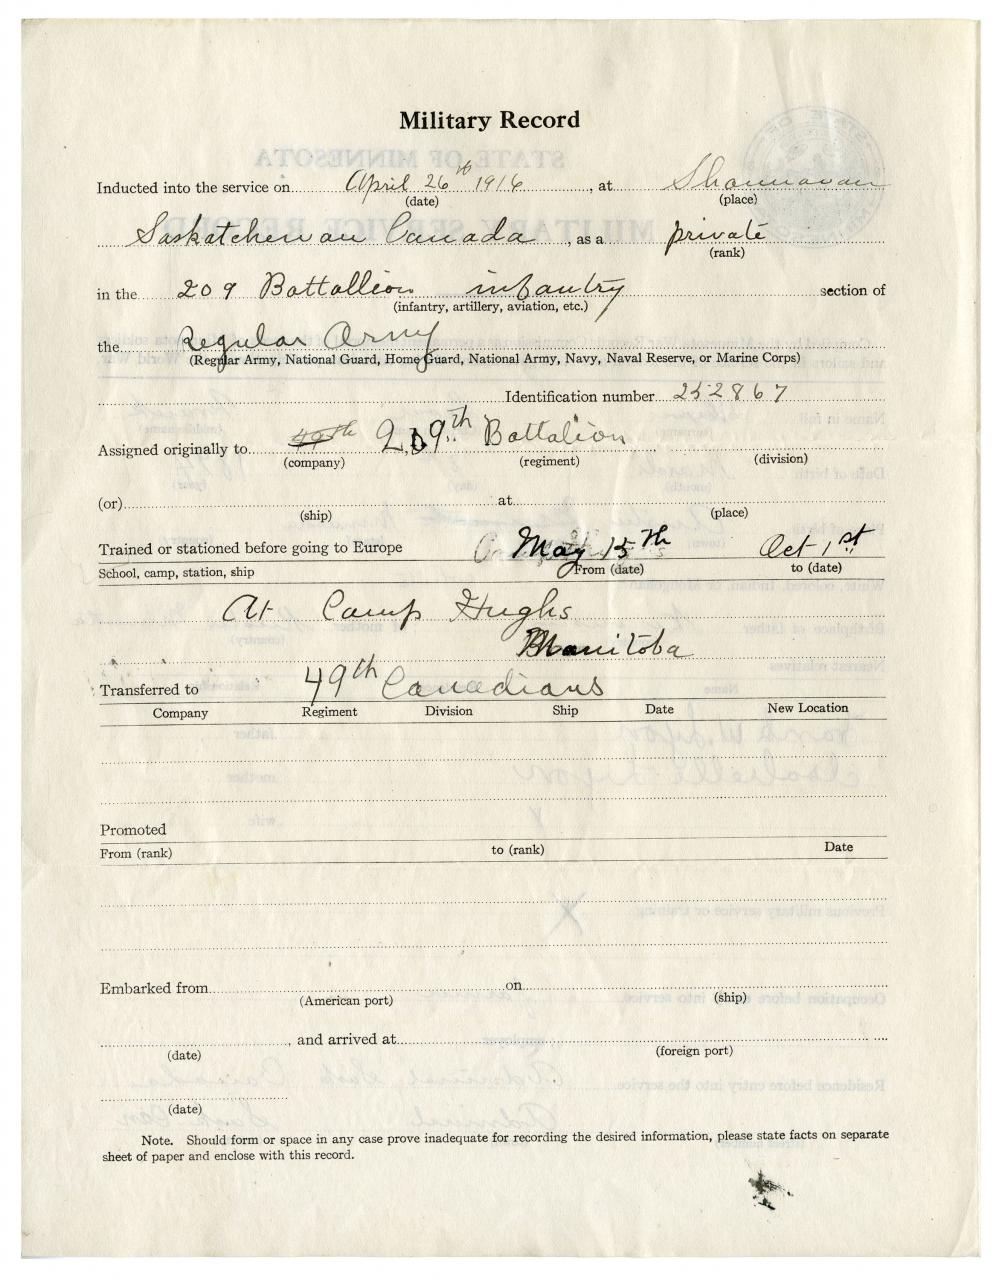 Military Record
Inducted into the service on April 26th 1916, at Shaunavan
(date) (place)
Saskatchewan Canada, as a private
(rank)
in the 209 Battallion infantry section of
(infantry, artillery, aviation, etc.)
the Regular Army
(Regular Army, National Guard, Home Guard, National Army, Navy, Naval Reserve, or Marine Corps)
Identification number 252867
Assigned originally to 49th 209th Battalion
(company) (regiment) (division)
(or) at
(ship) (place)
Trained or stationed before going to Europe May 15th Oct 1st
School, camp, station, ship From (date) to (date)
At Camp Hughs
Manitoba
Transferred to 49th Canadians
Company Regiment Division Ship Date New Location
Promoted
From (rank) to (rank) Date
Embarked from on
(American port) (ship)
, and arrived at
(date) (foreign port)
(date)
Note. Should form or space in any case prove inadequate for recording the desired information, please state facts on separate
sheet of paper and enclose with this record.